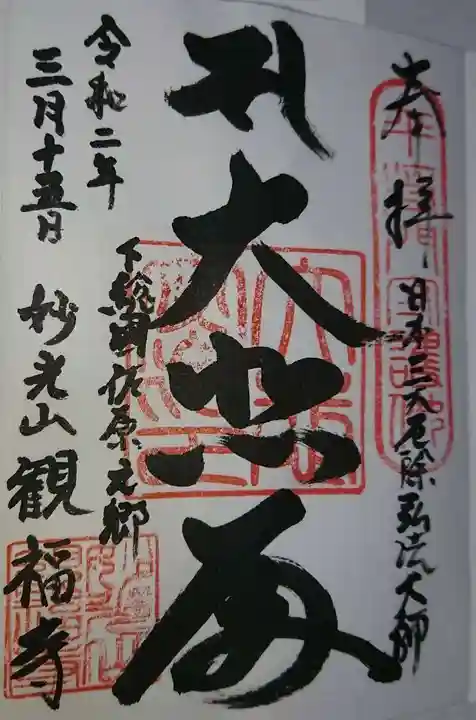 奉拝
日本三大厄除弘法大師
大悲殿
下総国佐原之郷
令和二年
三月十五日
妙光山観福寺